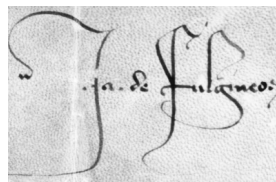 .Ja. de fulgineos